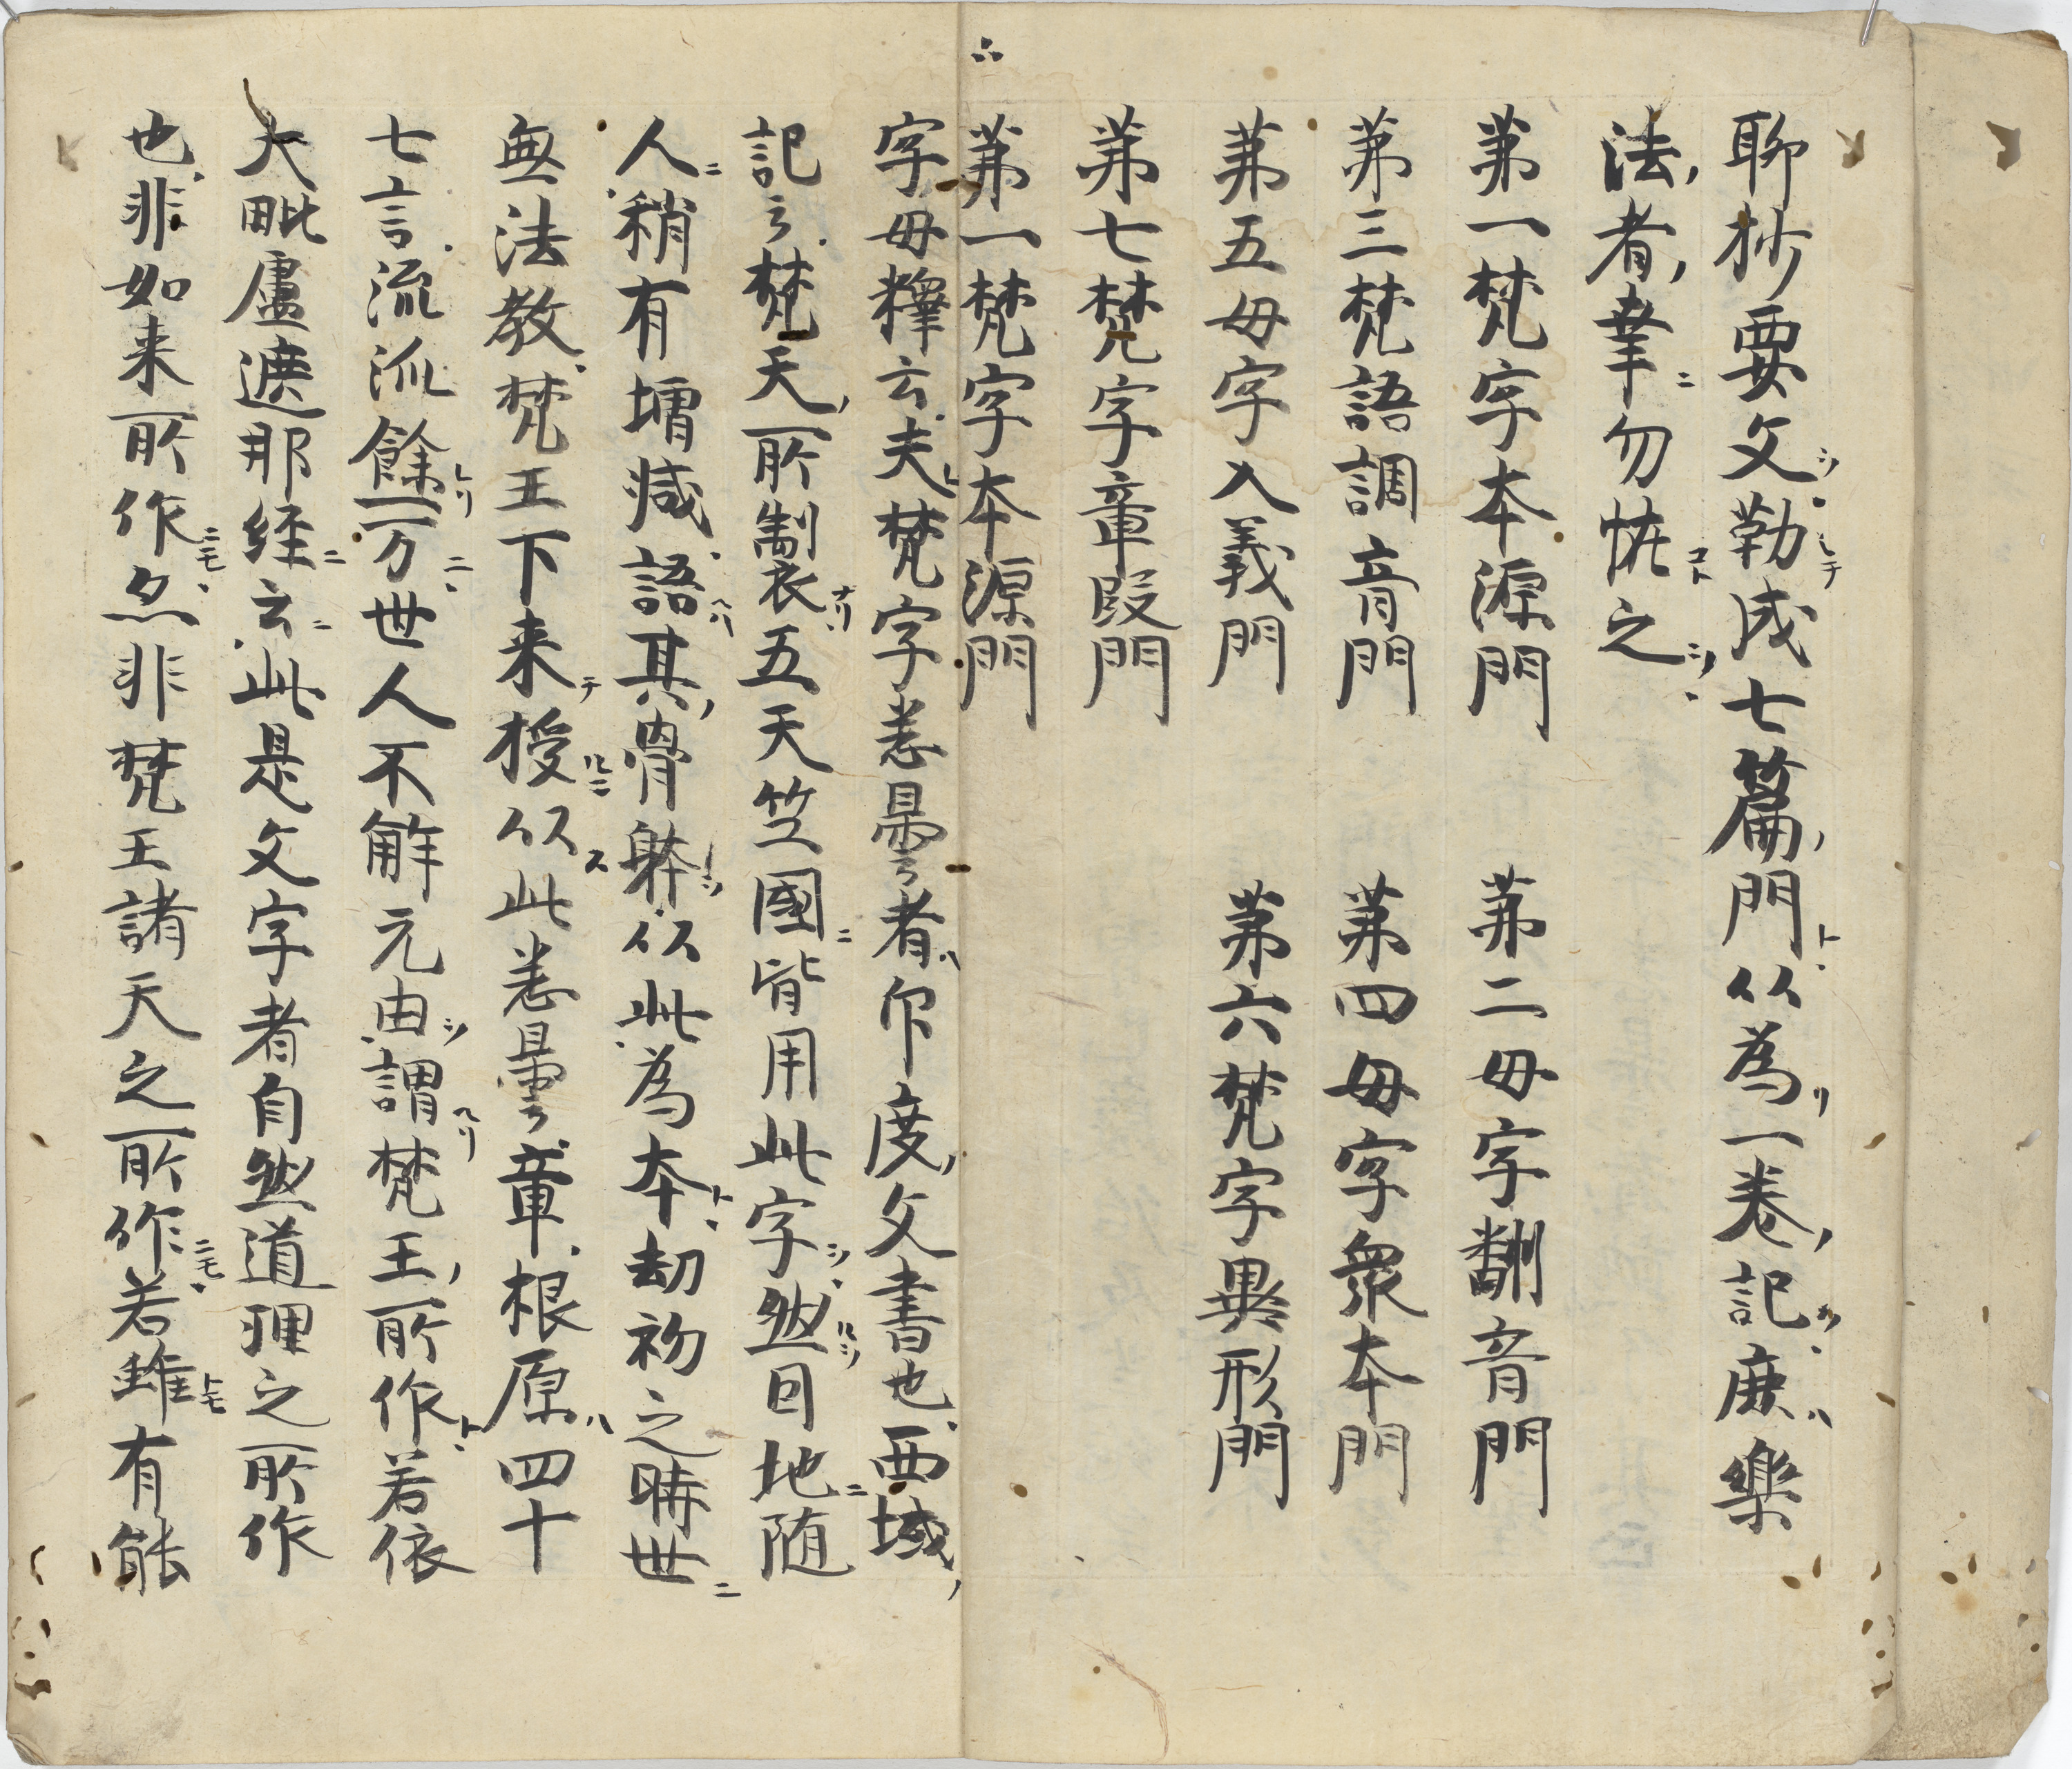 聊抄要文勒成七篇門以為一卷記庶樂
法者幸勿恠之
第一梵字本源門　第二母字翻音門
第三梵語調音門　第四母字衆本門
第五母字入義門　第六梵字異形門
第七梵字章段門
第一梵字本源門
字母釋云夫梵字悉曇者印度文書也西域
記云梵天所製五天笁國皆用此字然因地随
人稍有増减語其骨躰以此為本劫初之時世
無法教梵王下来授以此悉曇章根原四十
七言流派餘一万世人不解元由謂梵王所作若依
大毗盧遮那経云此是文字者自然道理之所作
也非如来所作亦非梵王諸天之所作若雖有能